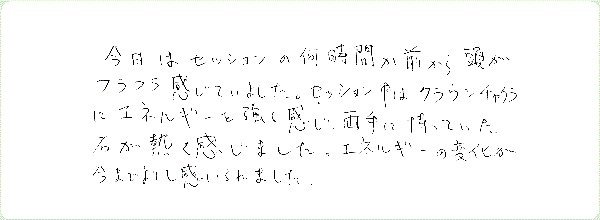 今日はセッションの何時間か前から頭が
フラフラ感じていました。セッション中はクラウンチャクラ
にエネルギーを強く感じ、両手に持っていた
石が熱く感じました。エネルギーの変化が
今までより感じられました。